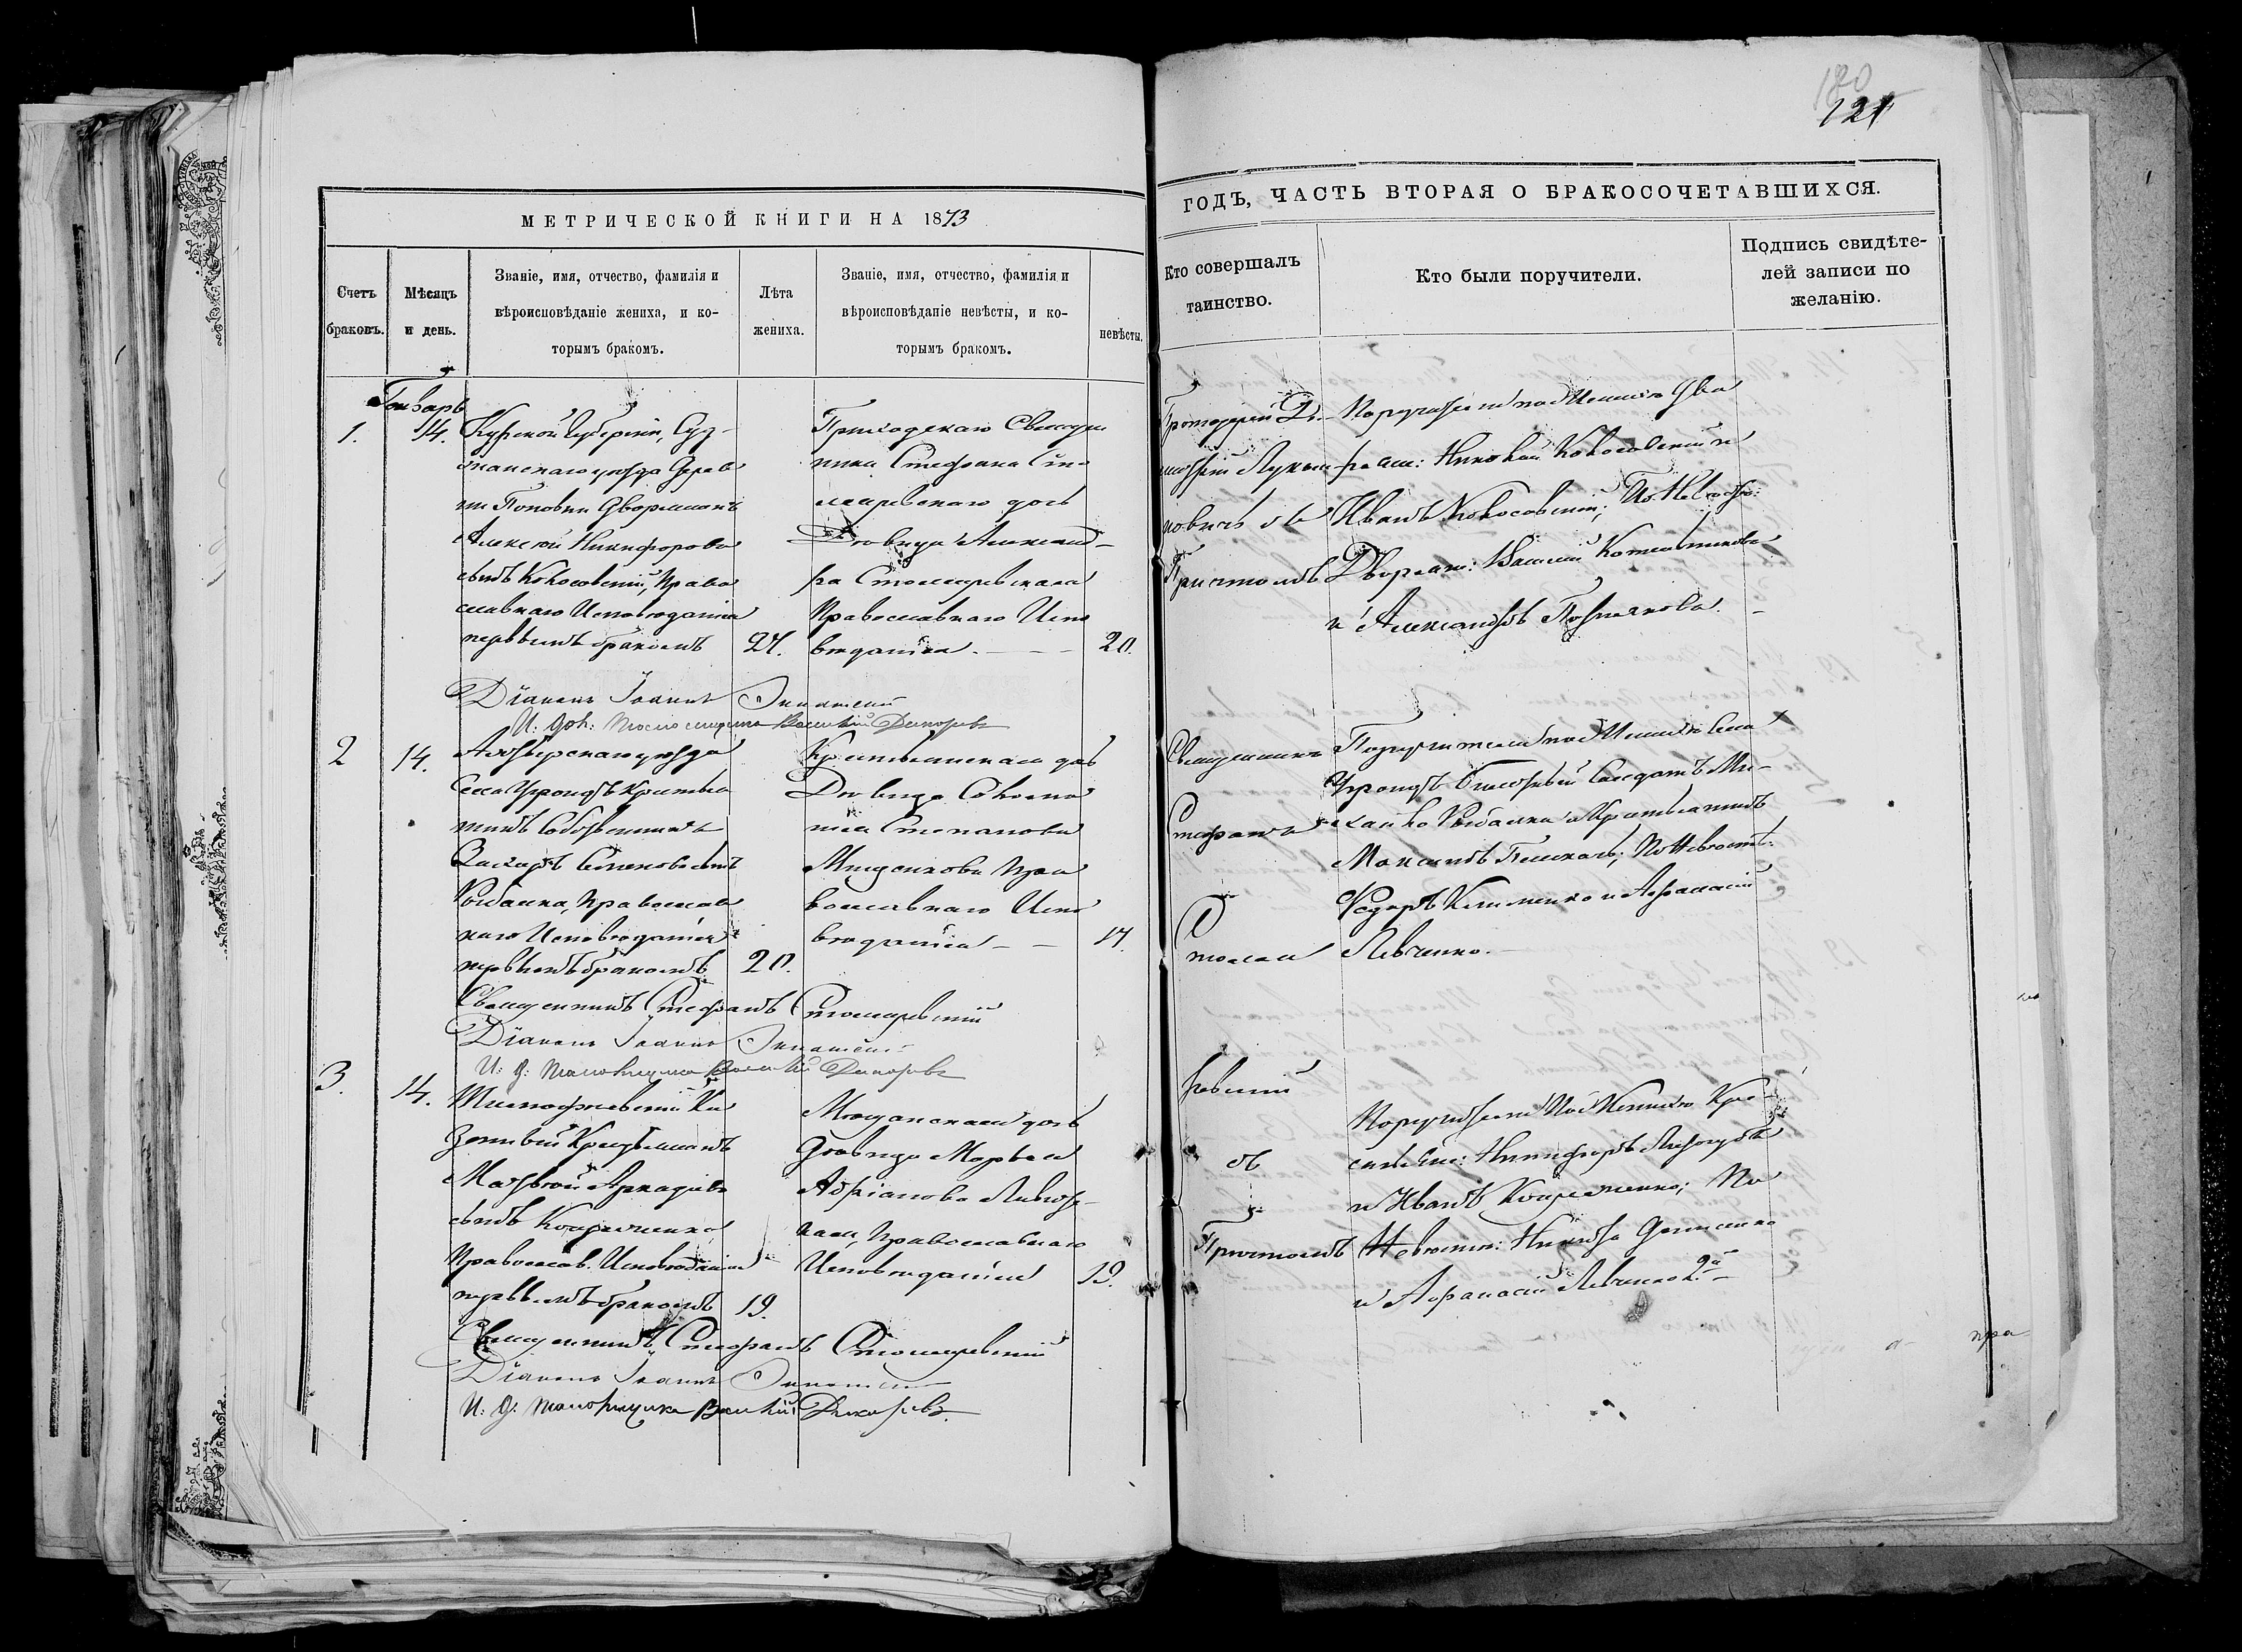 120
121
МЕТРИЧЕСКОЙ КНИГИ НА 1873
ГОДЪ, ЧАСТЬ ВТОРАЯ О БРАКОСОЧЕТАВШИХСЯ.
Счетъ браковъ.
Мѣсяцъ и день.
Званіе, имя, отчество, фамилія и
вѣроисповѣданіе жениха, и ко-
торымъ бракомъ.
Лѣта
жениха.
Званіе, имя, отчество, фамилія и
вѣроисповѣданіе невѣсты, и ко-
торымъ бракомъ.
невѣсты.
Кто совершалъ
таинство.
Кто были поручители.
Подпись свидѣте-
лей записи по
желанію.
Январь
1.
14.
Курской Губерніи, Суд-
жанскаго уѣзда Дерев
ни Поповки Дворянинъ
Алексѣй Никифоровъ
сынъ Кокосовскій, Право
славнаго Исповѣданія
первымъ бракомъ
24.
Приходскаго Священ
ника Стефана Сто
ляревскаго дочь
Дѣвица Александ-
ра Столяревская
Православнаго Испо
вѣданія.
20.
Протоіерей
Поручители по Женихѣ Дво
ряне: Николай Кокосовскій и
новичъ съ
Иванъ Кокосовскій; По Невѣстѣ:
Причтомъ
Дворяне: Василій Котляренков
и Александръ
Діаконъ Іоаннъ
Василій Дикаревъ
2
14.
уѣзда
Села Угроѣдъ Крестья
нинъ Собственникъ
Захаръ Семеновъ сынъ
Рыбалка, Православ
наго Исповѣданія
первымъ бракомъ
20.
Крестьянская дочь
Дѣвица
Степанова
Мищенкова Пра
вославнаго Испо
вѣданія
17.
Священникъ
Стефанъ
Сто
ля
Поручители по Женихѣ Села
Угроѣдъ Билетный Солдатъ Ми-
хайло Рыбалка и Крестьянинъ
Максимъ; По Невѣстѣ:
Федоръ Клименко и Афанасій
Левченко.
Священникъ Стефанъ Столяревскій
Діаконъ Іоаннъ
И. д. Псаломщика Василій Дикаревъ
3.
14.
зенный Крестьянинъ
Матвѣй Аркадіевъ
сынъ
Православ. Исповѣданія
первымъ бракомъ
19.
Мѣщанская дочь
Дѣвица Марѳа
Адріанова
Православнаго
Исповѣданія
19.
ревскій
съ
Причтомъ
Поручители По Женихѣ Кре-
стьяне: Никифоръ
и Иванъ; По
Невѣстѣ: Никита Денисенко
и Афанасій Левченко 2й
Священникъ Стефанъ Столяревскій
Діаконъ Іоаннъ
И. д. Псаломщика Василій Дикаревъ.